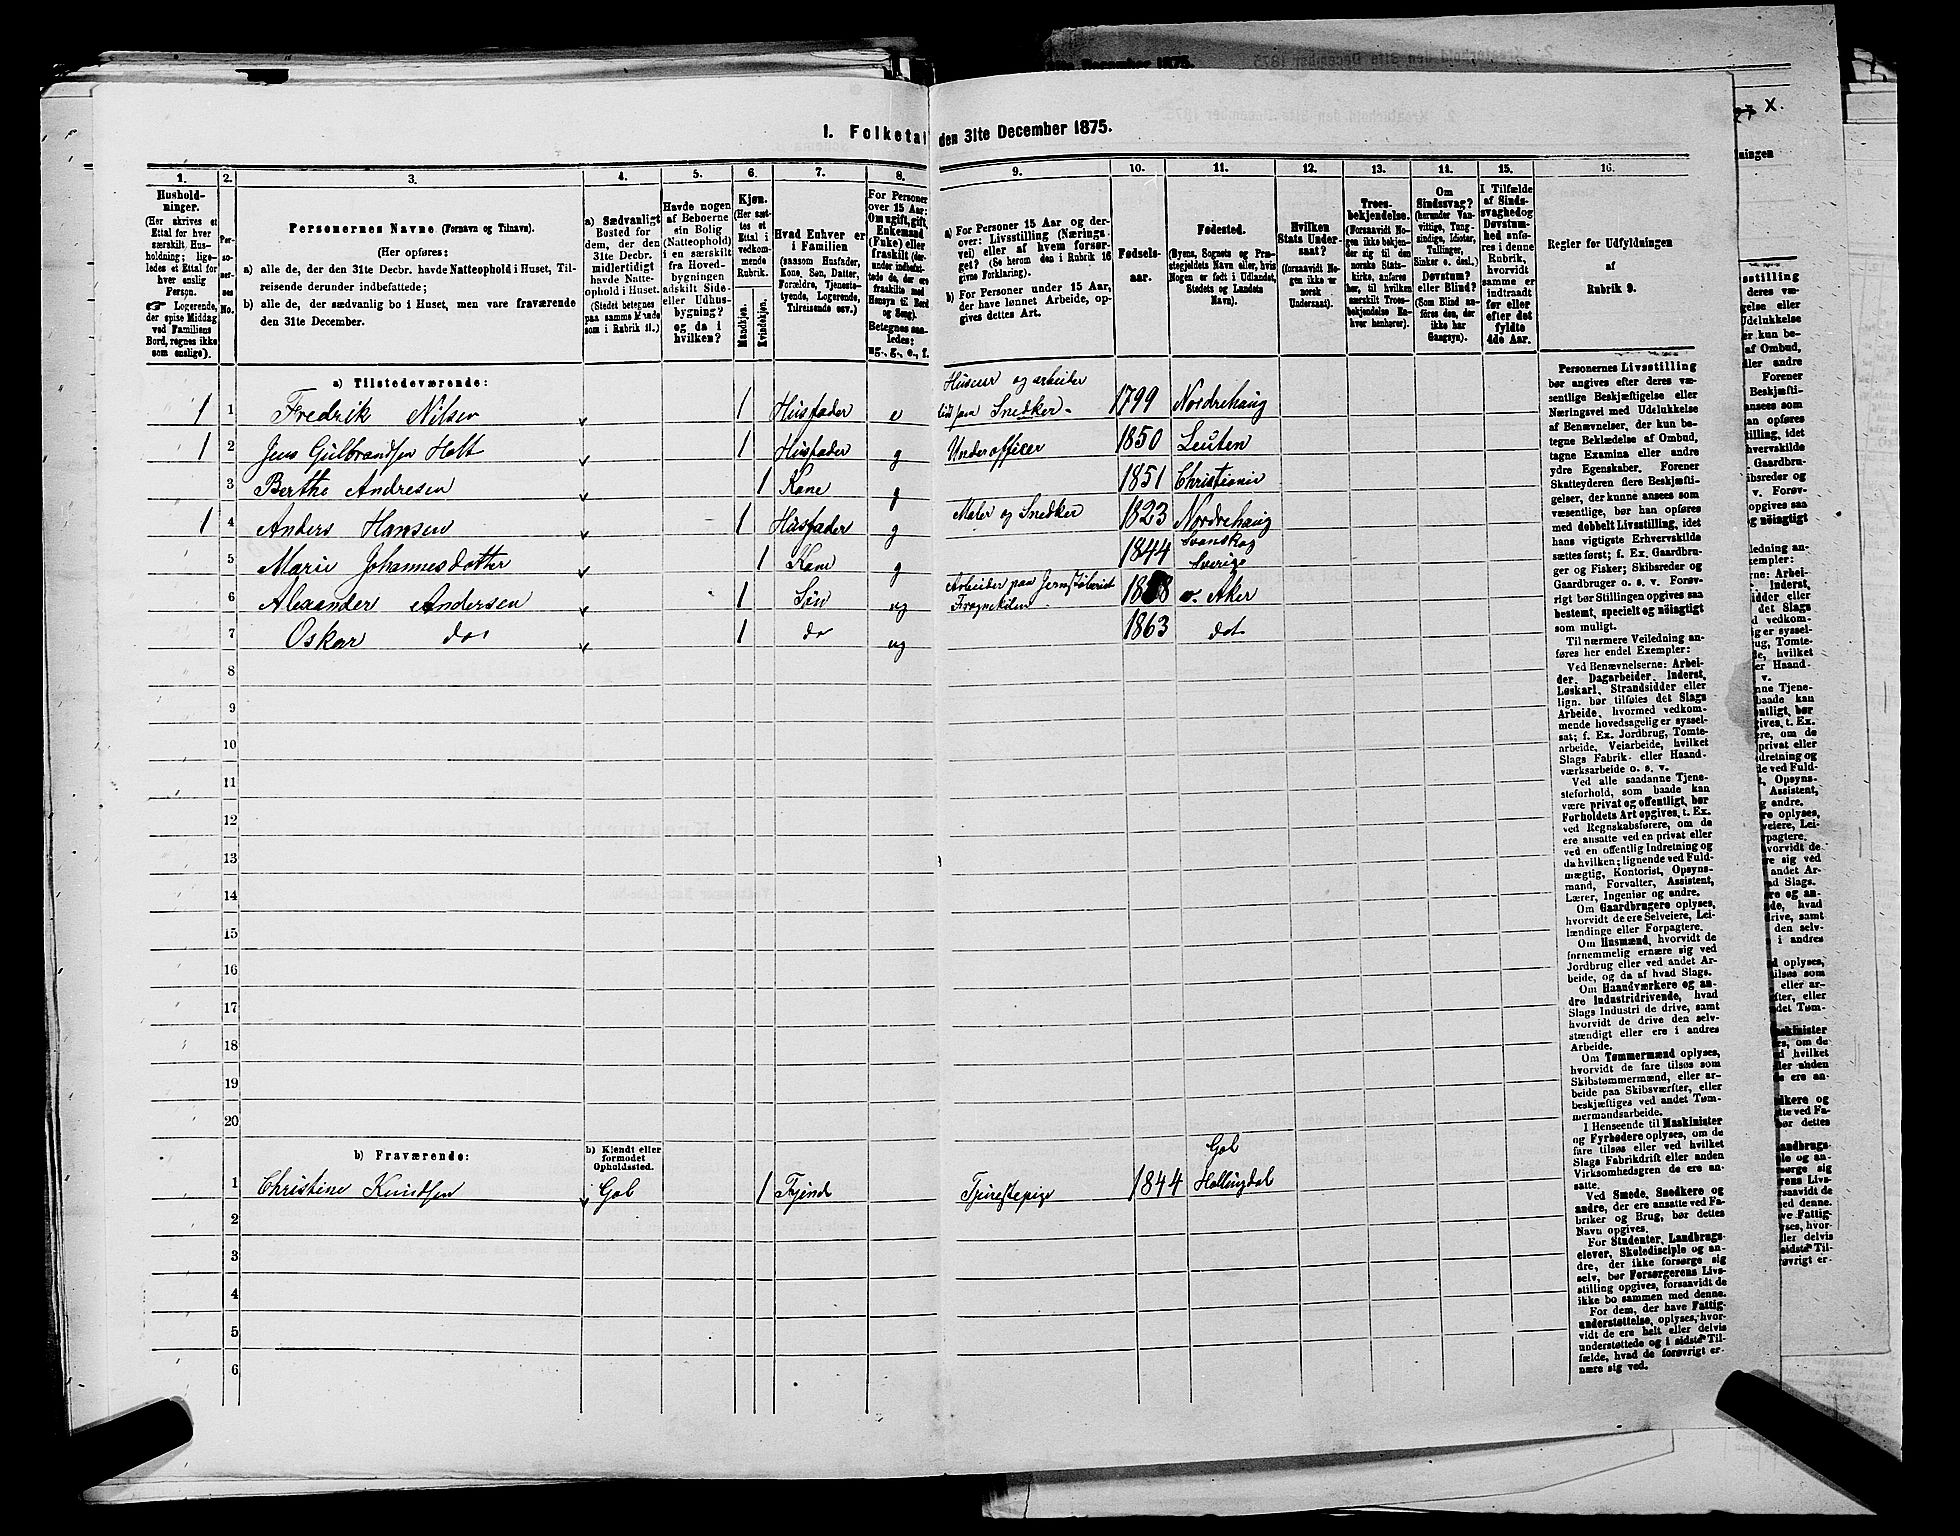 1. Folketal den 31te December 1875.
1. 2. 3. 4. 5. 6. 7. 8. 9. 10. 11. 12. 13. 14. 15. 16.
Hushold-
ninger.
(Her skrives et
Ettal for hver
særskilt Hus-
holdning; lige-
ledes et Ettal for
hver enslig
Person.
☞ Logerende,
der spise Middag
ved Familiens
Bord, regnes ikke
som enslige).
Per-
so-
ner-
nes
No.
Personernes Navne (Fornavn og Tilnavn).
(Her opføres:
a) alle de, der den 31te Decbr. havde Natteophold i Huset, Til-
reisende derunder indbefattede;
b) alle de, der sædvanlig bo i Huset, men vare fraværende
den 31te December.
a) Sædvanligt
Bosted for
dem, der den
31te Decbr.
midlertidigt
havde Natte-
ophold i Huset.
(Stedet betegnes
paa samme Maade
som i Rubrik 11.)
Havde nogen
af Beboerne
sin Bolig
(Natteophold)
i en særskilt
fra Hoved-
bygningen
adskilt Side-
eller Udhus-
bygning?
og da i
hvilken?
Kjøn.
(Her sæt-
tes et
Ettal i
vedkom-
mende
Rubrik.
Mandkjøn.
Kvindekjøn.
Hvad Enhver er
i Familien
(saasom Husfader,
Kone, Søn, Datter,
Forældre, Tjeneste-
tyende, Logerende,
Tilreisende osv.)
For Personer
over 15 Aar:
Om ugift, gift,
Enkemand
(Enke) eller
fraskilt (der-
under indbefat-
tede de, der ere
fraskilte med
Hensyn til Bord
og Seng).
Betegnes saa-
ledes:
ug., g., e., f.
a) For Personer 15 Aar og der-
over: Livsstilling (Nærings-
vei) eller af hvem forsør-
get? (Se herom den i Rubrik 16
givne Forklaring).
b) For Personer under 15 Aar,
der have lønnet Arbeide, op-
gives dettes Art.
Fødsels-
aar.
Fødested.
(Byens, Sognets og Præ-
stegjeldets Navn eller, hvis
Nogen er født i Udlandet,
Stedets og Landets
Navn).
Hvilken
Stats Under-
saat?
(forsaavidt No-
gen ikke er
norsk
Undersaat).
Troes-
bekjendelse.
(Forsaavidt No-
gen ikke bekjen-
der sig til den
norske Stats-
kirke, anføres
her, til hvilken
særskilt Troes-
bekjendelse En-
hver henhører).
Om
Sindssvag?
(herunder Van-
vittige, Tung-
sindige, Idioter,
Tullinger,
Sinker o. desl.)
Døvstum?
eller Blind?
(Som Blind an-
føres den, der
ikke har
Gangsyn).
I Tilfælde
af Sinds-
svaghed og
Døvstum-
hed anfø-
res i denne
Rubrik,
hvorvidt
samme er
indtraadt
før eller
efter det
fyldte
4de Aar.
Regler for Udfyldningen
af
Rubrik 9.
a) Tilstedeværende:
1 1 Fredrik Nilsen 1 Husfader e Huseier og arbeider lidt som Snedker. 1799 Nordrehaug
1 2 Jens Gulbrandsen Holt 1 Husfader g Underofficer 1850 Leuten
3 Berthe Andresen 1 Kone g 1851 Christiania
1 4 Anders Hansen 1 Husfader g Maler og Snedker 1823 Nordrehaug
5 Marie Johannesdotter 1 Kone g 1844 Svanskog Sverige
6 Alexander Andersen 1 Søn ug Arbeider paa Jernstøberiet Frognerkilen v. Aker
7 Oskar do 1 do ug 1863 do
8
9
10
11
12
13
14
15
16
17
18
19
20
b) Fraværende:
b) Kjendt eller
formodet
Opholdssted.
1 Christine Knudsen Gol 1 Tjende Tjenestepige 1844 Gol Hallingdal
2
3
4
5
6
Personernes Livsstilling
bør angives efter deres væ-
sentlige Beskjæftigelse eller
Næringsvei med Udelukkelse
af Benævnelser, der kun be-
tegne Beklædelse af Ombud,
tagne Examina eller andre
ydre Egenskaber. Forener
Skatteyderen flere Beskjæfti-
gelser, der kunne ansees som
væsentlige, bør han opføres
med dobbelt Livsstilling, idet
hans vigtigste Erhvervskilde
sættes først; f. Ex. Gaardbru-
ger og Fisker; Skibsreder og
Gaardbruger o. s. v. Forøv-
rigt bør Stillingen opgives saa
bestemt, specielt og nöiagtigt
som muligt.
Til nærmere Veiledning an-
føres her endel Exempler:
Ved Benævnelserne: Arbei-
der, Dagarbeider, Inderst,
Løskarl, Strandsidder eller
lign. bør tilføies det Slags
Arbeide, hvormed vedkom-
mende hovedsagelig er syssel-
sat; f. Ex. Jordbrug, Tomte-
arbeide, Veiarbeide, hvilket
Slags Fabrik- eller Haand-
værksarbeide o. s. v.
Ved alle saadanne Tjene-
steforhold, som baade kan
være privat og offentligt, bør
Forholdets Art opgives, t. Ex.
ved Regnskabsførere, om de
ere ansatte ved en privat eller
ved en offentlig Indretning og
da hvilken; lignende ved Fuld-
mægtig, Kontorist, Opsyns-
mand, Forvalter, Assistent,
Lærer, Ingeniør og andre.
Om Gaardbrugere oplyses,
hvorvidt de ere Selveiere, Lei-
lændinge eller Forpagtere.
Om Husmænd, hvorvidt de
fornemmelig ernære sig ved
Jordbrug eller ved andet Ar-
beide, og da af hvad Slags.
Om Haandværkere og an-
dre Industridrivende, hvad
Slags Industri de drive, samt
hvorvidt de drive den selv-
stændigt eller ere i andres
Arbeide.
Om Tømmermænd oplyses,
hvorvidt de fare tilsøs som
Skibstømmermænd, eller ar-
beide paa Skibsværfter, eller
beskjæftiges ved andet Tøm-
mermandsarbeide.
I Henseende til Maskinister
og Fyrbødere oplyses, om de
fare tilsøs eller ved hvilket
Slags Fabrikdrift eller anden
Virksomhedsgren de ere an-
satte.
Ved Smede, Snedkere og
andre, der ere ansatte ved Fa-
briker og Brug, bør dettes
Navn opgives.
For Studenter, Landbrugs-
elever, Skoledisciple og an-
dre, der ikke forsørge sig
selv, bør Forsørgerens Livs-
stilling opgives, forsaavidt de
ikke bo sammen med denne.
For dem, der have Fattig-
understøttelse, oplyses, hvor-
vidt de ere helt eller delvis
understøttede og i sidste Til-
fælde, hvad de forøvrigt er-
nære sig ved.